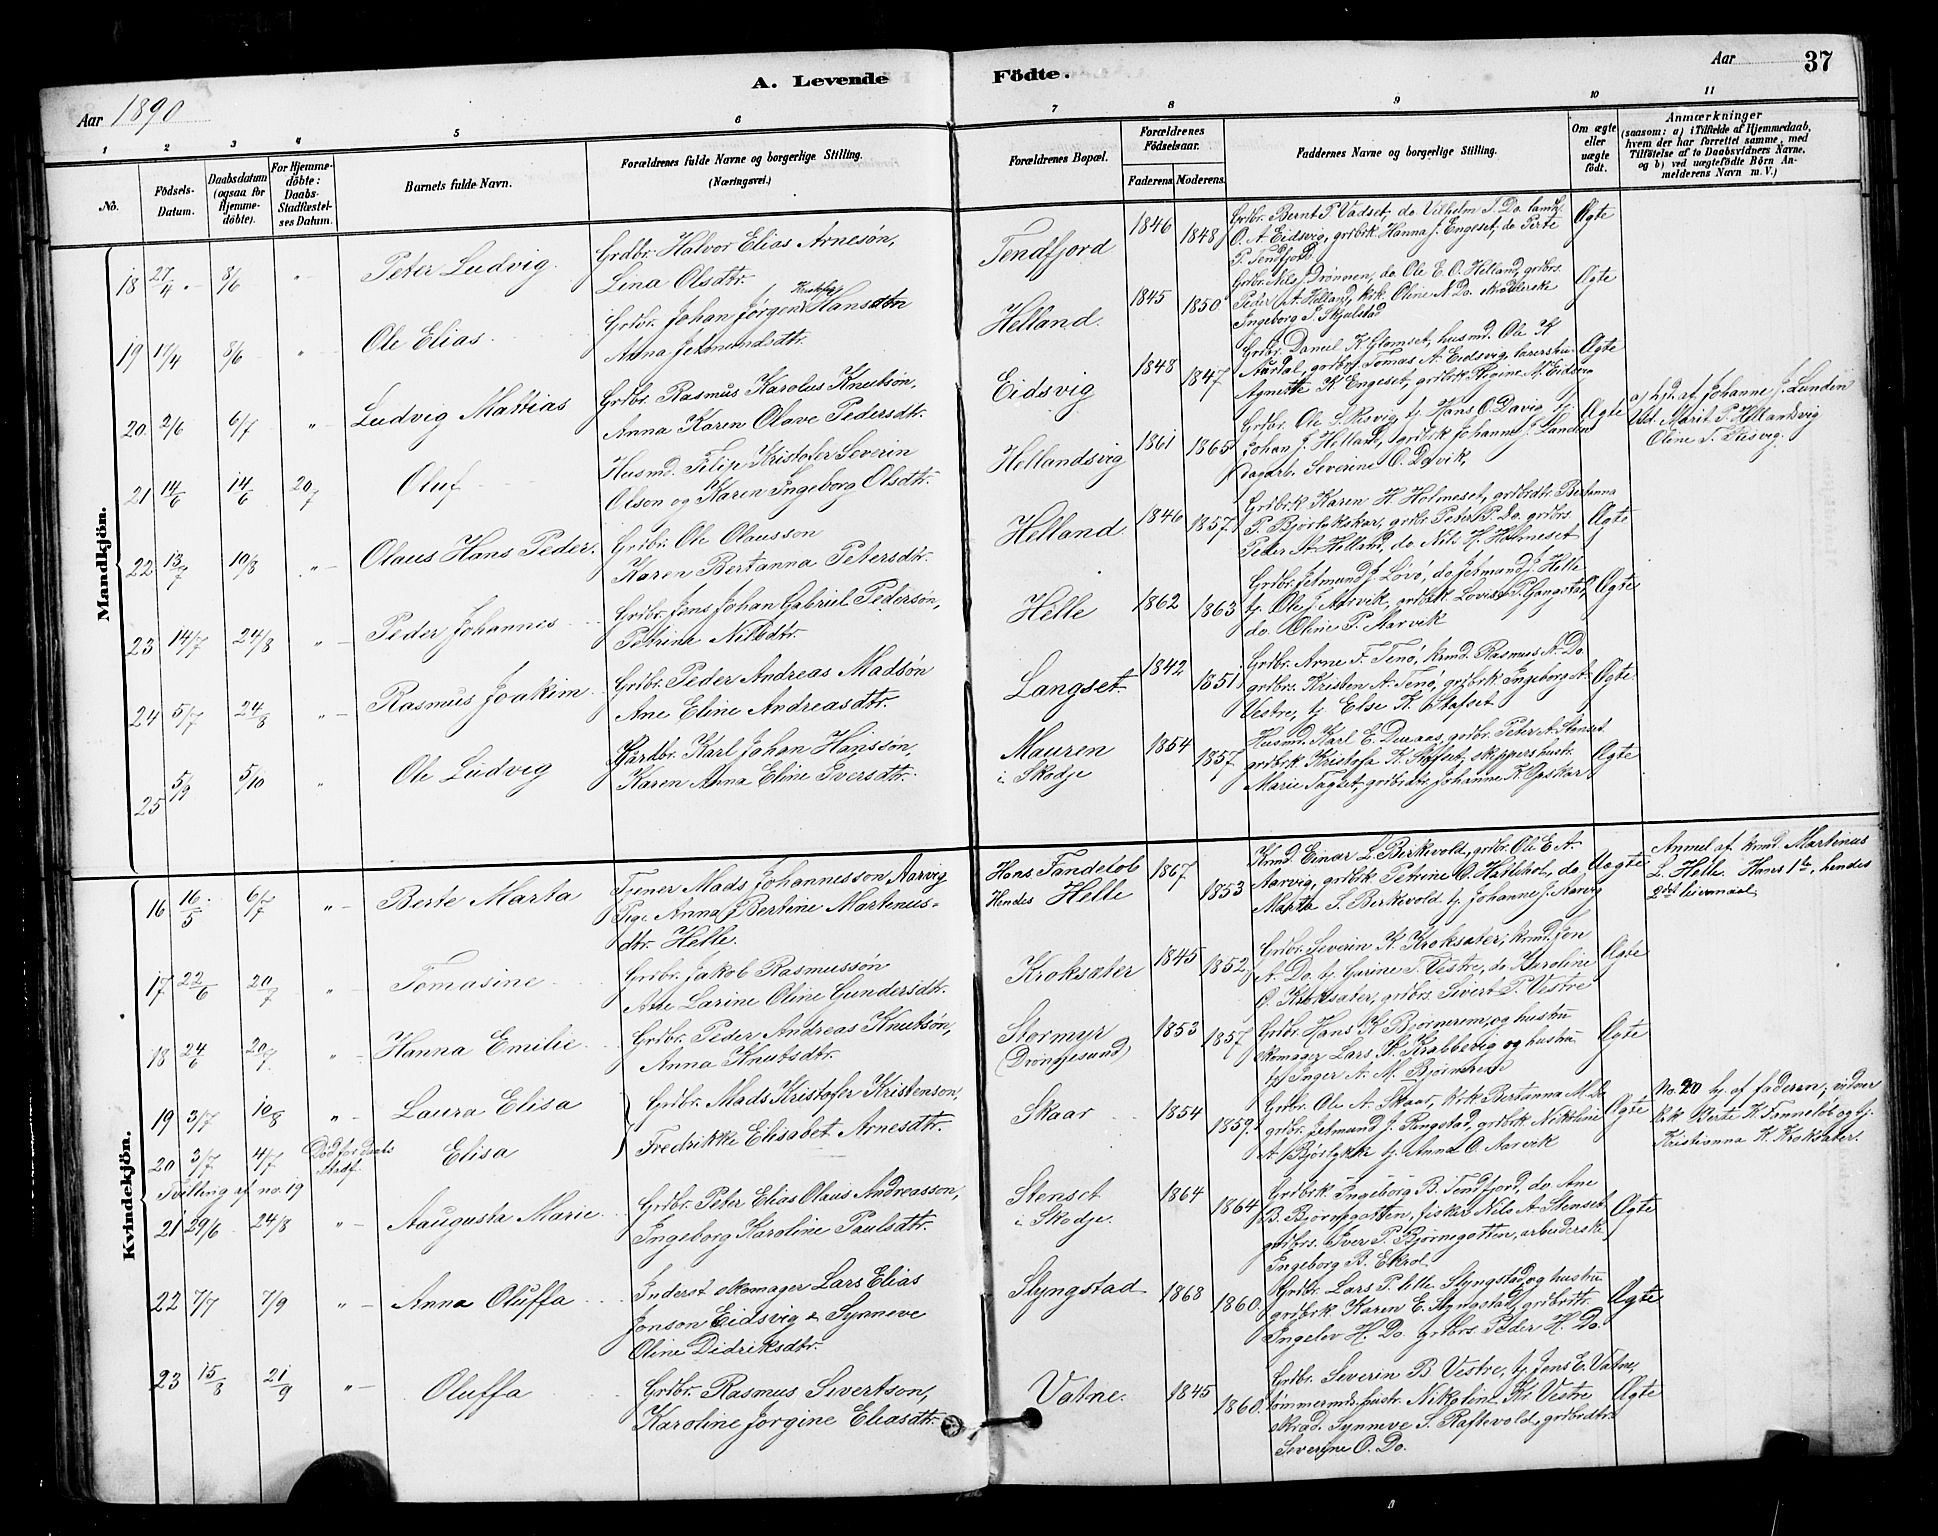 A. Levende Födte.
Aar 1890
Aar 37
1 2 3 4 5 6 7 8 9 10 11
No.
Födsels-Datum.
Daabsdatum (ogsaa för Hjemmedöbte).
For Hjemmedöbte: Daabs-Stadfæstelses Datum.
Barnets fulde Navn.
Forældrenes fulde Navne og borgerlige Stilling.
(Næringsvei.)
Forældrenes Bopæl.
Forældrenes Födselsaar.
Faderens. Moderens.
Faddernes Navne og borgerlige Stilling.
Om ægte eller uægte födt.
Anmærkninger
(saasom: a) i Tilfælde af Hjemmedaab,
hvem der har forrettet samme, med
Tilföielse af to Daabsvidners Navne,
og b) ved uægtefödte Börn Anmelderens Navn m. V.)
Mandkjön.
18 27/4 8/6 " Peter Ludvig
Grdbr. Halvor Elias Arnesön,
Lina Olsdtr.
Tendfjord 1846 1848
Grdbr. Bernt P. Vadset, do Vilhelm P. Do
O. A. Eidsvig, grdbrk. Hanna J. Engeset, do Perte
P. Tendfjord
Ægte
19 17/4 8/6 " Ole Elias
Grdbr. Johan Jörgen Kristofer Hansön
Anna Jetmundsdtr.
Helland. 1845 1850
Grdbr. Nils Drönnen, do. Ole E. O. Helland, grdbrs.
Peder A. Helland, krk. Oline N. Do
Ingeborg P. Skjelstad
Ægte
20 2/6 6/7 " Ludvig Mattias
Grdbr. Rasmus Karolus Knutsön,
Anna Karen Olave Pedersdtr.
Eidsvig 1848 1847
Grdbr. Daniel K. Glomset, husmd. Ole K.
Aurdal, grdbrs Tomas A. Eidsvig,
Agnette K. Engeset, grdbrk Regine N. Eidsvig
Ægte
21 14/6 14/6 20/7 Oluf
Husmd. Filip Kristofer Severin
Olson og Karen Ingeborg Olsdtr.
Hellandsvig 1861 1865
Grdbr. Ole L. Risvig, tj. Hans O. Davig, tj.
Johan J. Helland, grdbrk Johanne J. Lunden
dagarb. Severine O. Davik,
Ægte
a) hjd. af Johanne J. Lunden
Vid. Marit P. Hellandsvig
Oline T. Risvig.
22 13/7 10/8 " Olaus Hans Peder.
Grdbr. Ole Olausson
Karen Bertanna Petersdtr.
Helland 1846 1857
Grdbrk Karen H. Holmeset, grdbrdtr. Bertanna
P. Björlykskar, grdbr. Peter P. Do. grdbrs.
Peder A. Helland, do. Nils H. Holmeset
Ægte
23 14/7 24/8 " Peder Johannes
Grdbr. Jens Johan Gabriel Pederson,
Petrine Nilsdtr.
Helle 1862 1863
Grdbr. Jetmund J. Lövö, do Jetmund J. Helle
tj. Ole J. Aarvik, grdbrk Lovise P. Gangstad,
do. Oline P. Aarvik
Ægte
24 5/7 24/8 " Rasmus Joakim
Grdbr. Peder Andreas Madsön
Ane Eline Andreasdtr.
Langset 1842 1851
Grdbr. Arne F. Tenö, krmd. Rasmus A. Do
grdbrs. Kristen A. Tenö, grdbrk Ingeborg A.
Vestre, tj. Else K. Stafset
Ægte
25 5/9 5/10 " Ole Ludvig
Gårdbr. Karl Johan Hansson,
Karen Anna Eline Iversdtr.
Mauren
i Skodje
1854 1857
Husmd. Karl E. Duaas, grdbr. Peter A. Stenset
grdbrk Kristofa K. Stafset, skippershustr.
Marie Fagset, grdbrdtr Johanne K. Opskar
Ægte
Kvindekjön.
16 16/5 6/7 " Berte Marta
Tjener Mads Johannesson Aarvig
Pige Anna Bertine Martinus-
dtr. Helle.
Hans Tandelob
Hendes Helle
1867 1853
Krmd. Einar L. Birkevold, grdbr. Ole E. A.
Aarvig, grdbrk Petrine O. Hatlehol, do
Marta S. Berkevold tj. Johanne J. Aarvig
Uægte
Anmel af krmd. Martinus
L. Helle. Hans 1te, hendes
2det leiermaal
17 22/6 20/7 " Tomasine
Grdbr. Jakob Rasmussön
Ane Larine Oline Gundersdtr.
Kroksæter 1845 1852
Grdbr. Severin K. Kroksæter, krmd. Jon
A. Do tj. Carine T. Vestre, do Karoline
O. Kroksæter, grdbrs. Sivert T. Vestre
Ægte
18 24/6 20/7 " Hanna Emilie
Grdbr. Peder Andreas Knutsön,
Anna Knutsdtr.
Stormyr
(Dröngesund)
1853 1857
Grdbr. Hans K. Bjørnerem, og hustru
skomager Lars K. Krabbevig og hustru
tj. Inger A. M. Bjørnerem
Ægte
19 3/7 10/8 " Laura Elisa
Grdbr. Mads Kristofer Kristenson,
20 3/7 4/7 Död för Daabs Stadf. Elisa
Fredrikke Elisabet Arnesdtr.
Tvilling af no. 19
Skaar 1854 1859
Grdbr. Ole A. Skaar, krk Bertanna M. Do
grdbr. Jetmund J. Ringstad, grdbrk Nikoline
A. Björlykke tj. Anna O. Aarvik
Ægte
No. 20 hj. af faderen; vidner
krk Berte K. Tennelöb og tj.
Kristianna K. Kroksæter.
21 29/6 24/8 " Aaugusta Marie
Grdbr. Peter Elias Olaus Andreasson,
Ingeborg Karoline Paulsdtr.
Stenset
i Skodje.
1864 1864
Grdbrk. Ingeborg B. Tendfjord, do. Ane
B. Björnegotten, fisker Nils A. Stenset
grdbrs. Iver P. Björnegotten, arbeiderske
Ingeborg B. Ekrol
Ægte
22 7/7 7/9 " Anna Oluffa
Inderst skomager Lars Elias
Jonson Eidsvig & Synneve
Oline Didriksdtr.
Slyngstad 1868 1860
Grdbr. Lars P. lille Slyngstad og hustru
grdbrk Karen E. Slyngstad, grdbrdtr.
Ingelev H. Do. grdbrs. Peder H. Do.
Ægte
23 15/8 21/9 " Oluffa
Grdbr. Rasmus Sivertson,
Karoline Jorgine Eliasdtr.
Vatne. 1845 1860
Grdbr. Severin B. Vestre, tj. Jens E. Vatne,
tömmermds.hustr. Nikoline Kr. Vestre
Synneve S. Raftevold, grdbrdtr.
Severine O. Do.
Ægte